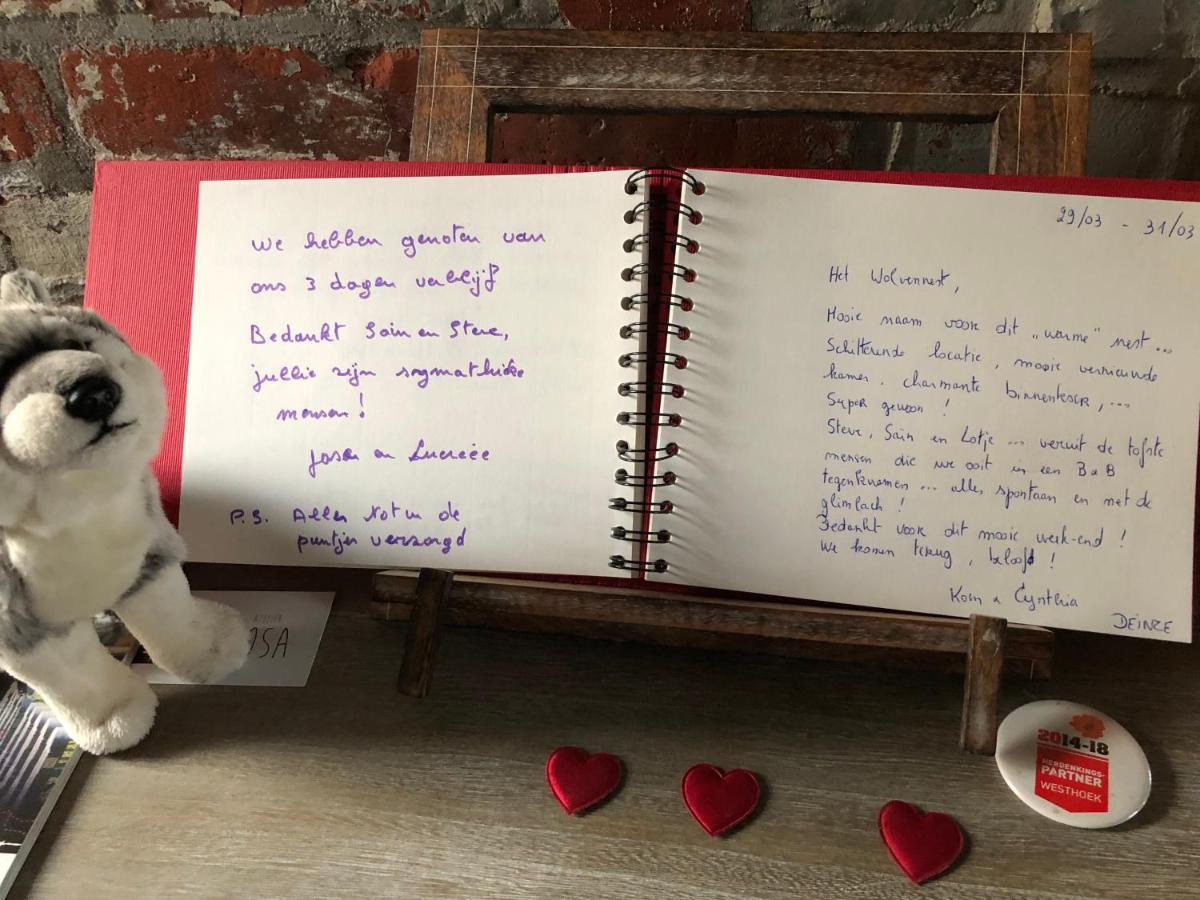 we hebben genoten van
ons 3 dagen verblijf
Bedankt Sain en Steve,
jullie zijn sympathieke
mensen!
en Lucrèce
P.S. Alles tot in de
puntjes verzorgd
29/03 - 31/03
Het Wolvennest,
Mooie naam voor dit „warme" nest ...
Schitterende locatie, mooie vernieuwde
kamer, charmante binnenkoer, ...
Super gewoon!
Steve, Sain en Lotje ... veruit de tofste
mensen die we ooit in een B&B
tegenkwamen ... alles spontaan en met de
glimlach!
Bedankt voor dit mooie week-end!
We komen terug, beloofd!
Koen & Cynthia
DEINZE
ATELIER
2014-18
HERDENKINGS-
PARTNER
WESTHOEK